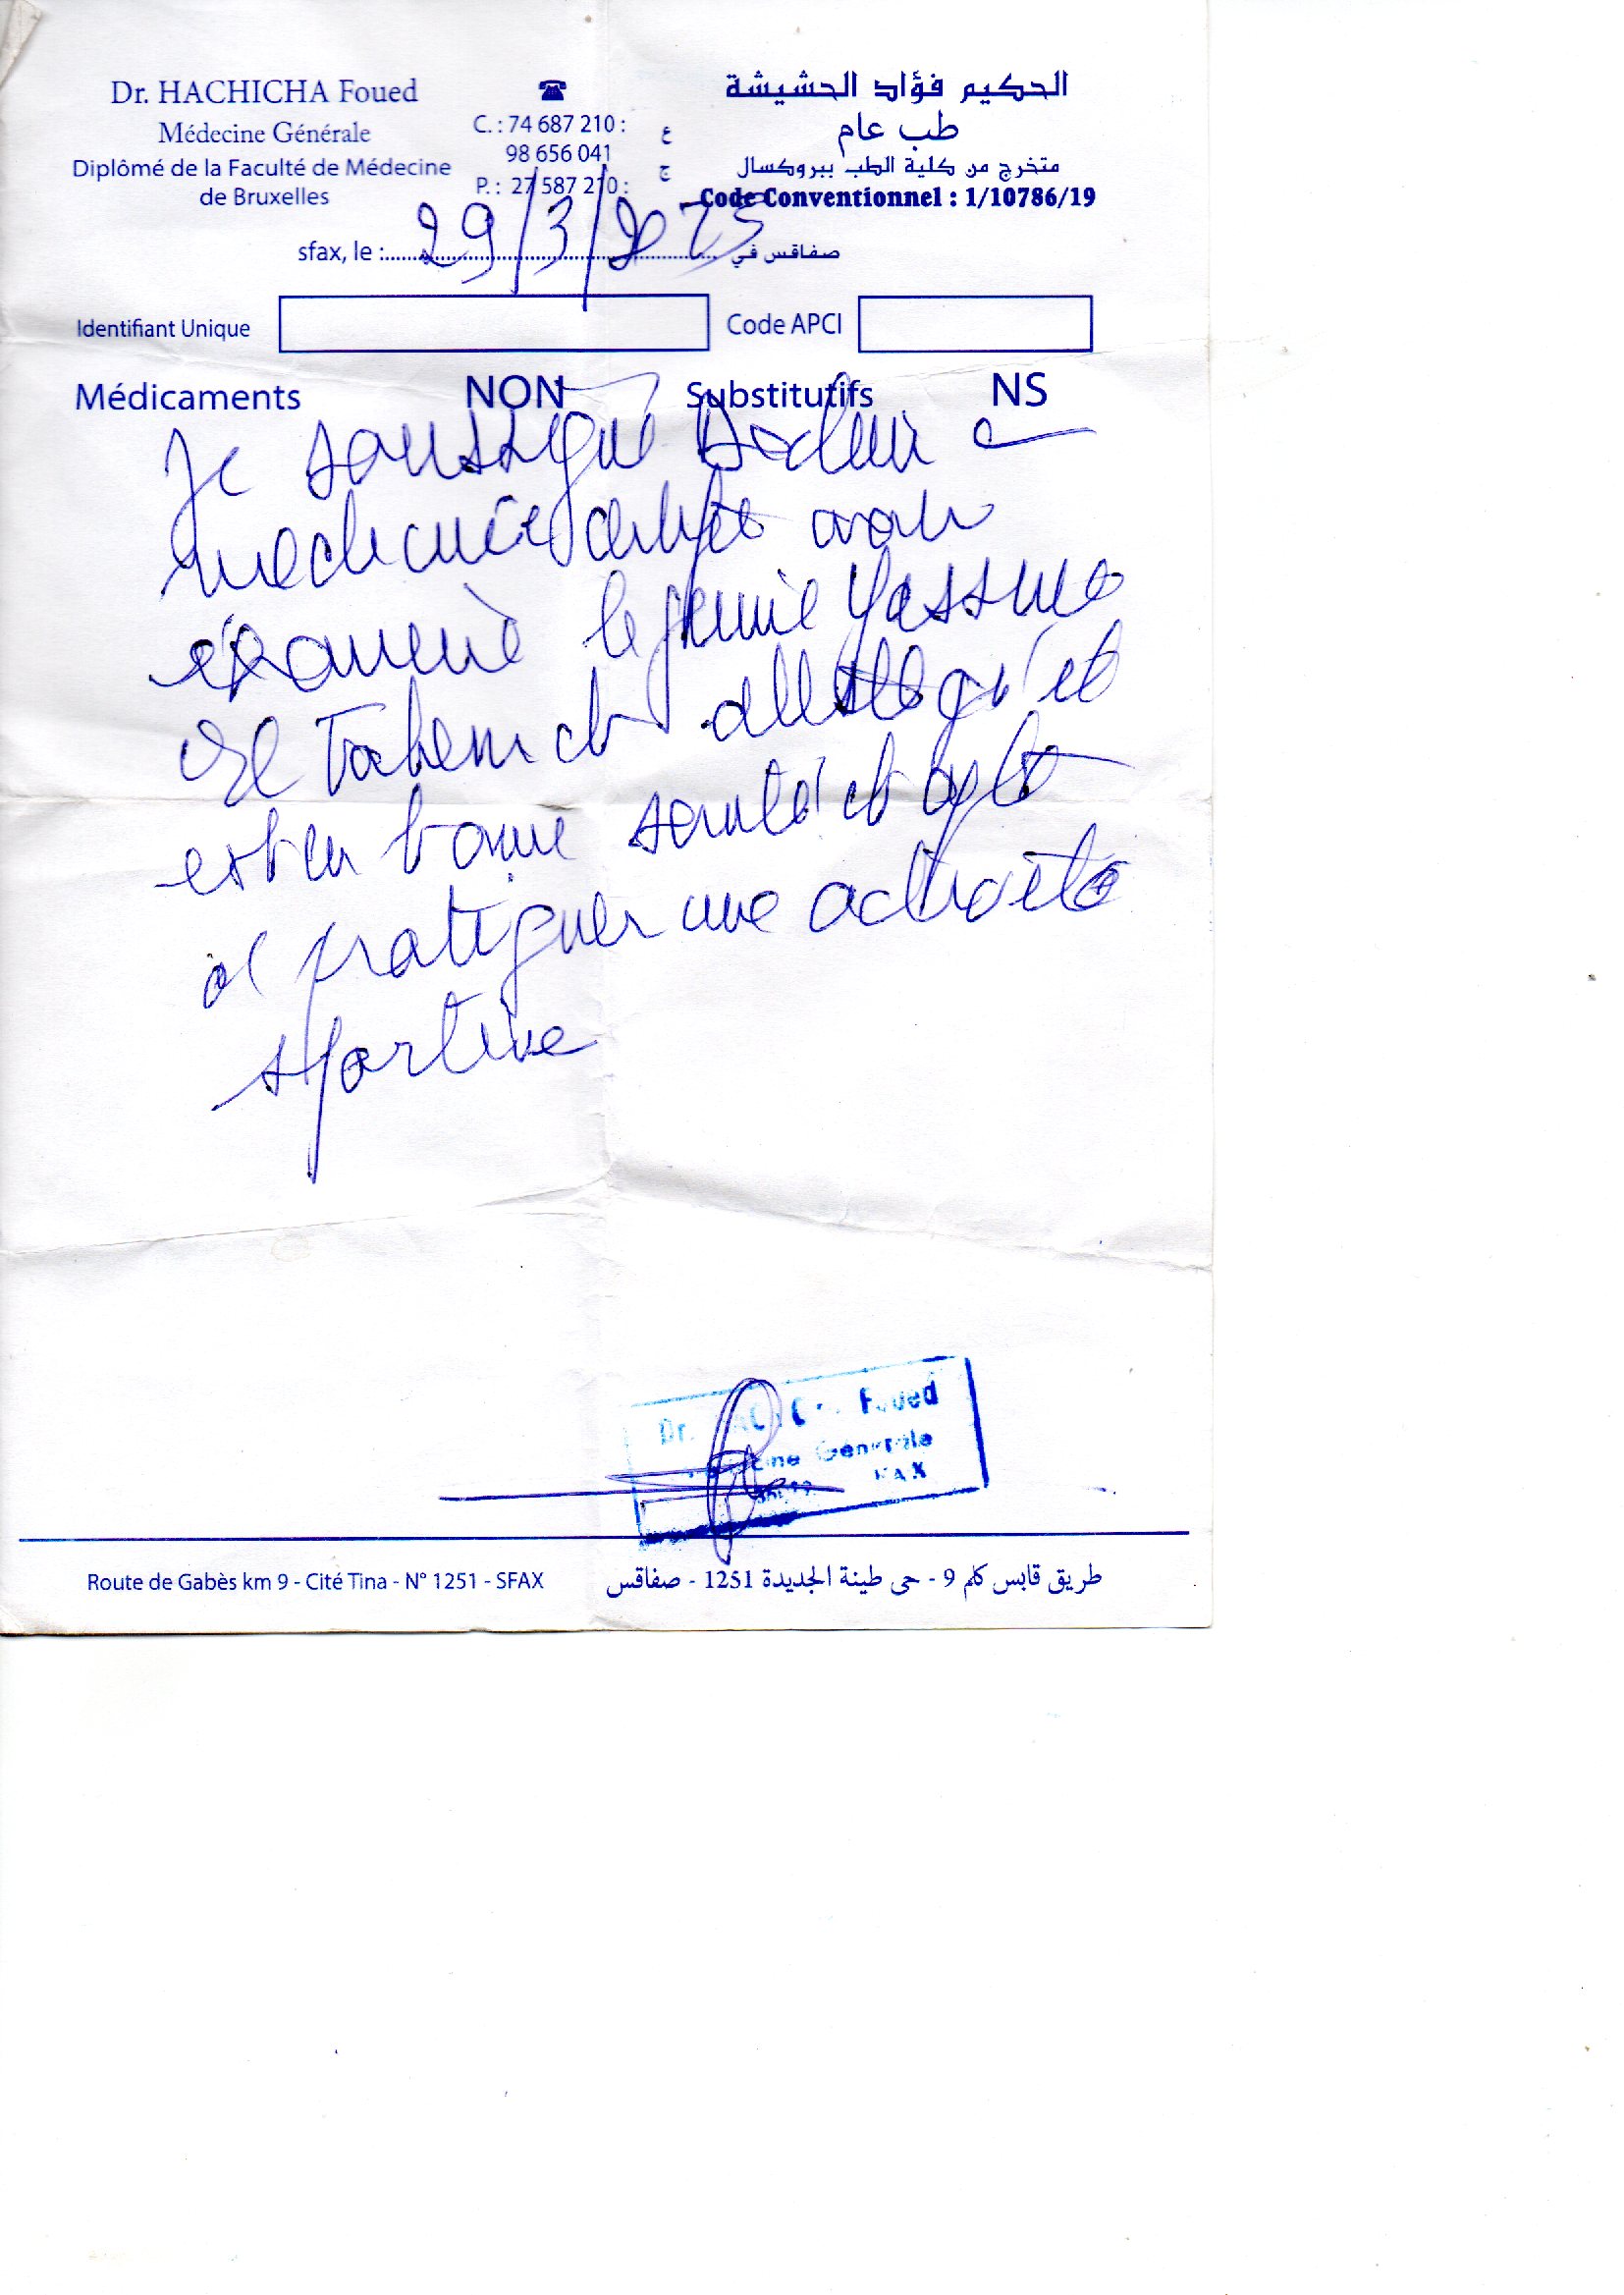 Dr. HACHICHA Foued
Médecine Générale
Diplômé de la Faculté de Médecine
de Bruxelles
C. : 74 687 210 : ع
98 656 041
P. : 27 587 210 : ج
الحكيم فؤاد الحشيشة
طب عام
متخرج من كلية الطب ببروكسال
Code Conventionnel : 1/10786/19
sfax, le : 29/3/2025 صفاقس في
Identifiant Unique Code APCI
Médicaments NON Substitutifs NS
Je soussigné Docteur en
médecine certifie avoir
examiné le jeune Yassine
et atteste qu'il
est en bonne santé et apte
à pratiquer une activité
sportive
Dr. Foued
Générale
Route de Gabès km 9 - Cité Tina - N° 1251 - SFAX
طريق قابس كلم 9 - حي طينة الجديدة 1251 - صفاقس